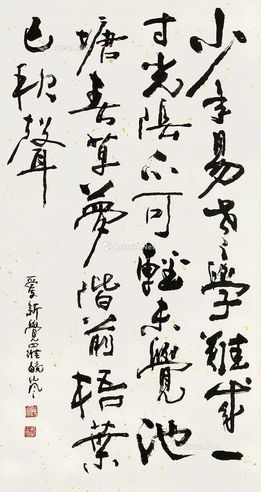 少年易老學難成一
寸光陰不可輕未覺池
塘春草夢階前梧葉
已秋聲
愛新覺羅毓嵐